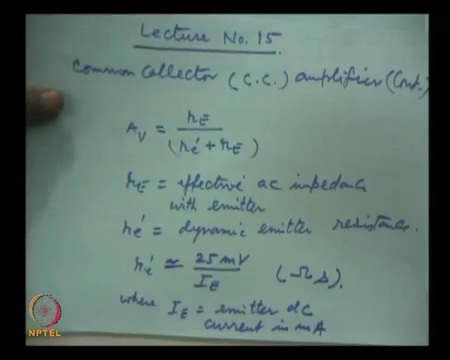 Lecture No. 15.
Common Collector (C.C.) amplifier (Cont.)
A_V = r_E / (r_e' + r_E)
r_E = effective ac impedance
with emitter
r_e' = dynamic emitter resistance.
r_e' ≃ 25 mV / I_E (Ω s).
where I_E = emitter dc
current in mA
NPTEL